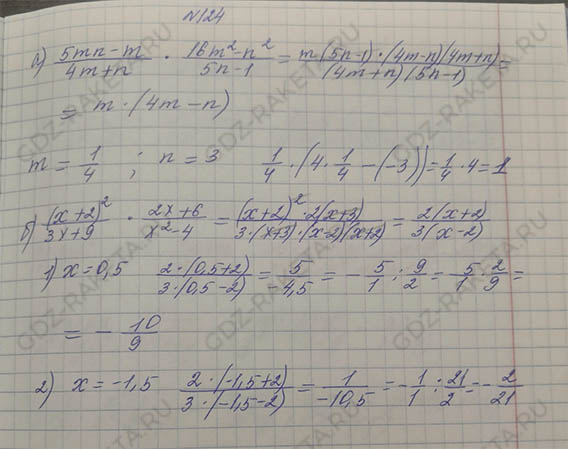 №124
а) (5mn-m)/(4m+n) · (16m²-n²)/(5n-1) = (m(5n-1)·(4m-n)(4m+n))/((4m+n)(5n-1)) =
= m·(4m-n)
m = 1/4 ; n = 3 1/4·(4·1/4-(-3)) = 1/4·4 = 1
б) (x+2)²/(3x+9) · (2x+6)/(x²-4) = ((x+2)²·2(x+3))/(3·(x+3)·(x-2)(x+2)) = 2(x+2)/3(x-2)
1) x = 0,5 2·(0,5+2)/3·(0,5-2) = 5/-4,5 = -5/1 : 9/2 = -5/1 · 2/9 =
= -10/9
2) x = -1,5 2·(-1,5+2)/3·(-1,5-2) = 1/-10,5 = -1/1 : 21/2 = -2/21
GDZ-RAKETA.RU